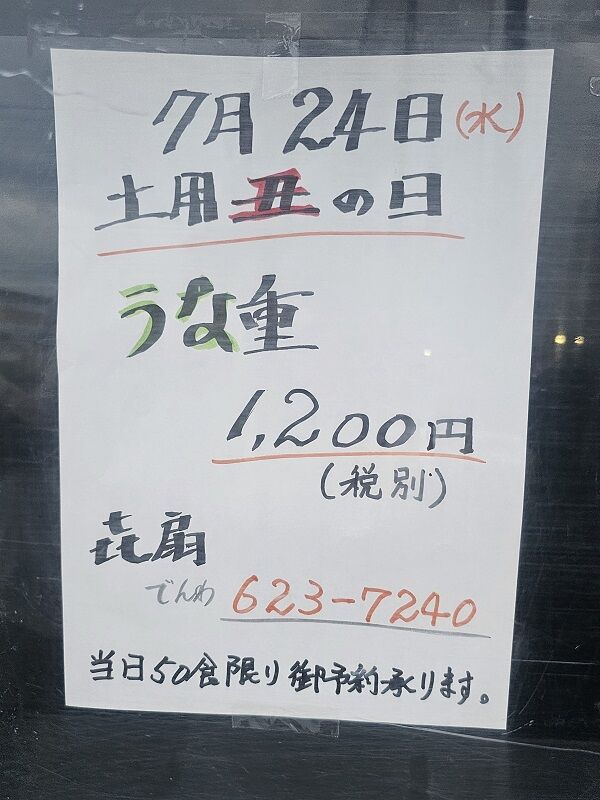 7月24日(水)
土用丑の日
うな重
1,200円
(税別)
㐂扇
でんわ 623-7240
当日50食限り御予約承ります。